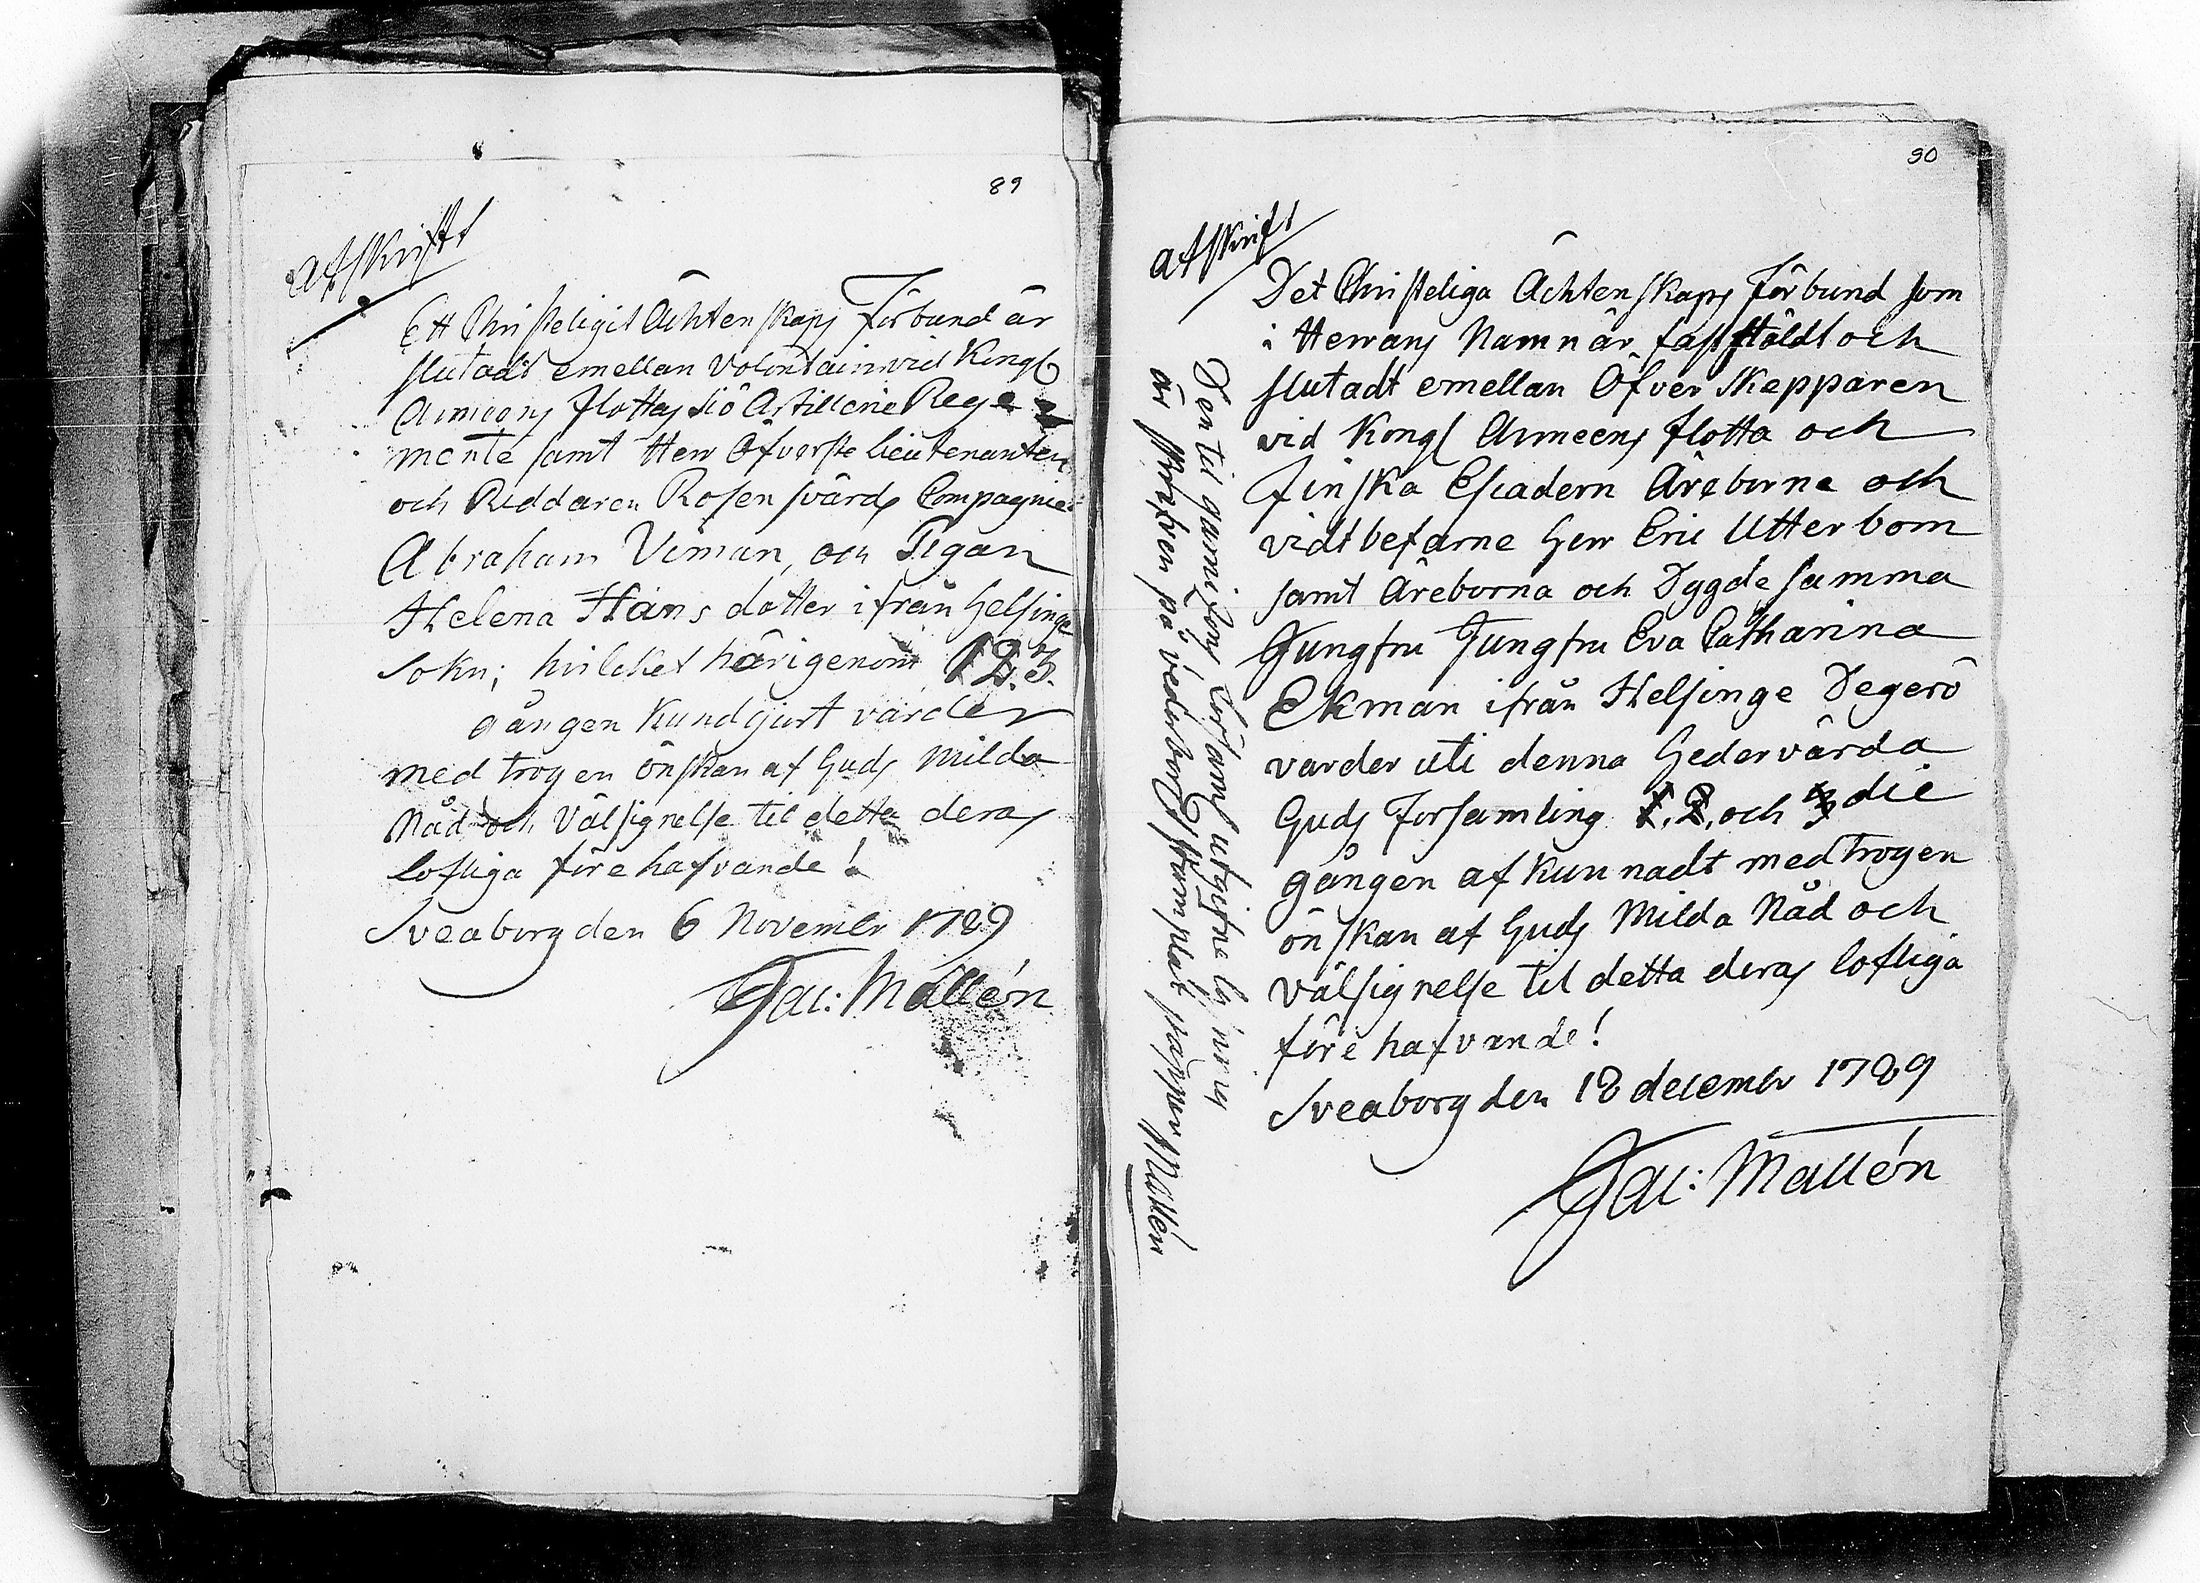 89
afskrift
Ett Christeligit Ächtenskaps Förbund är
slutadt emellan Volontairn vid Kongl
Armeens flottas siö Artillerie Rege
mente samt Herr Öfverste lieutenanten
och Riddaren Rosensvärds Compagnie
Abraham Viman, och Pigan
Helena Hans dotter ifrån Helsinge
Sokn; hvilcket härigenom 1 2. 3.
gången kundgjort varder
med trogen önskan af Guds milda
Nåd och Välsignelse til detta deras
lofliga förehafvande!
Sveaborg den 6 Novembr 1789
Jac: Mallén
90
afskrift
Det Christeliga Ächtenskaps Förbund som
i Herrans Namn är fastställdt och
slutadt emellan Öfver Skepparen
vid Kongl Armeens flotta och
Finska Escadern Äreborne och
vidtbefarne Herr Eric Utterbom
samt Äreborna och Dygdesamma
Jungfru Jungfru Eva Catharina
Ekman ifrån Helsinge Degerö
varder uti denna Hedervärda
Guds Forsamling 1. 2. och 3 die
gången af kunnadt med trogen
önskan af Guds Milda Nåd och
Välsignelse til detta deras lofliga
förehafvande!
Sveaborg den 18 decembr 1789
Jac: Mallén
Den til garnizons Forsaml utgifne
är skrifven på vederbörl Stämplat papper Mallén